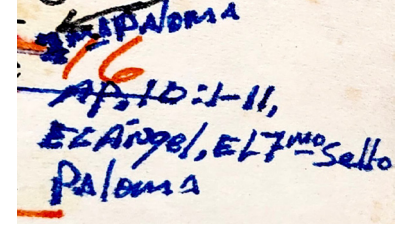 1ma PALOMA
16
AP. 10:1-11,
EL Ángel, EL 7mo Sello
Paloma